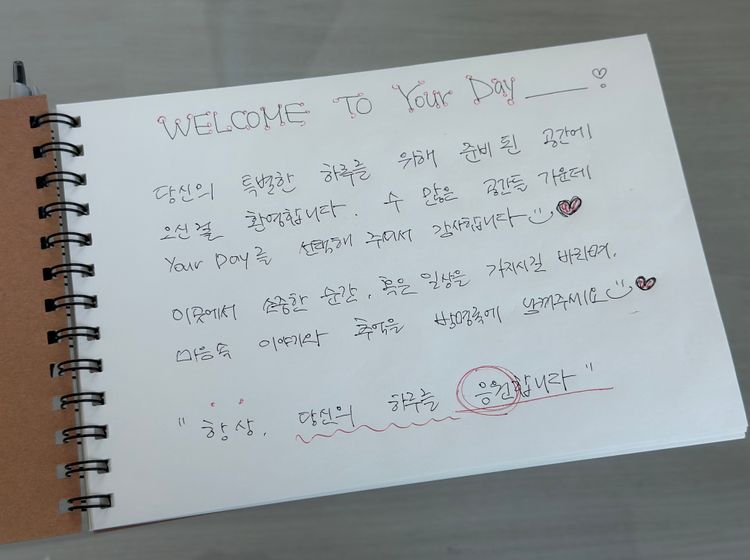 WELCOME TO Your Day ____ ♡
당신의 특별한 하루를 위해 준비된 공간에
오신걸 환영합니다. 수 많은 공간들 가운데
Your Day를 선택해 주셔서 감사합니다
이곳에서 소중한 순간, 혹은 일상을 가지시길 바라며,
마음속 이야기와 추억을 방명록에 남겨주세요
"항상, 당신의 하루를 응원합니다"